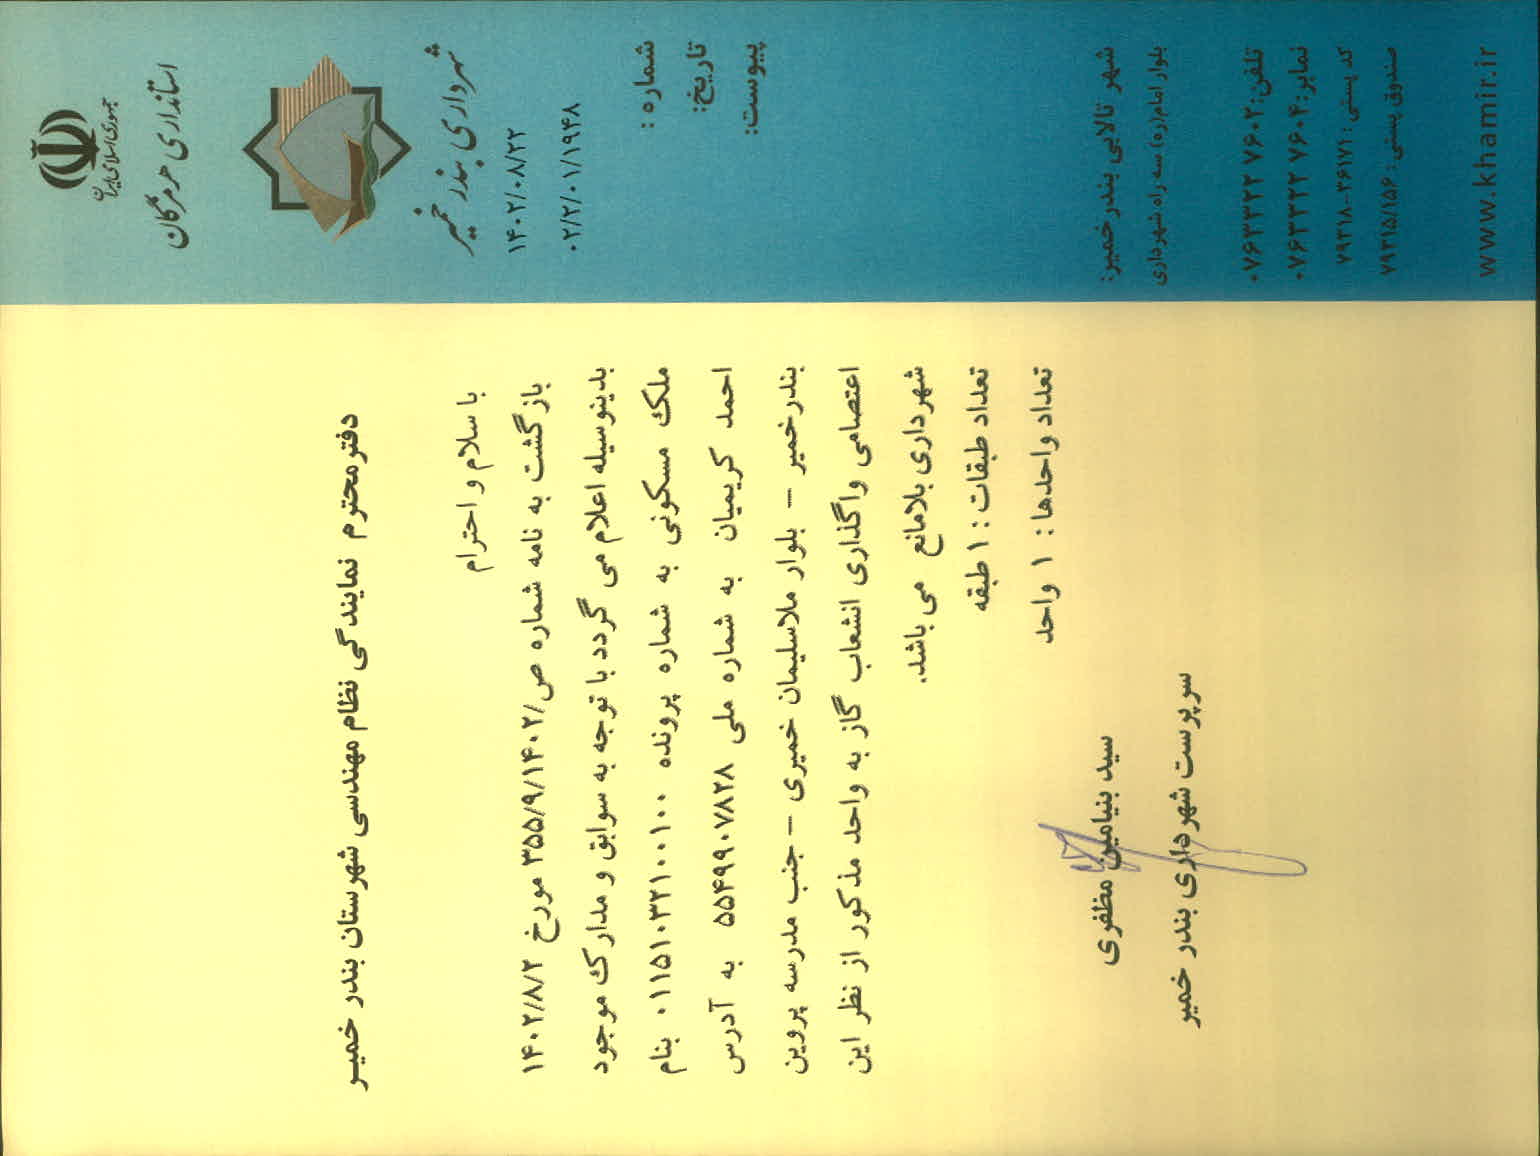 جمهوری اسلامی ایران
استانداری هرمزگان
شهرداری بندر خمیر
۱۴۰۲/۰۸/۲۳
۰۲/۲/۰۱/۱۹۴۸
شماره :
تاریخ:
پیوست:
شهر تالابی بندرخمیر:
بلوار امام(ره) سه راه شهرداری
تلفن: ۰۷۶۳۳۲۲۷۶۰۲
نمابر: ۰۷۶۳۳۲۲۷۶۰۴
کد پستی : ۷۹۳۱۸-۳۶۱۷۱
صندوق پستی : ۷۹۳۱۵/۱۵۶
www.khamir.ir
دفتر محترم نمایندگی نظام مهندسی شهرستان بندر خمیر
با سلام و احترام
بازگشت به نامه شماره ص/۳۵۵/۹/۱۴۰۲ مورخ ۱۴۰۲/۸/۲
بدینوسیله اعلام می گردد با توجه به سوابق و مدارک موجود
ملک مسکونی به شماره پرونده ۰۱۱۵۱۰۳۲۱۰۰۱۰۰ بنام
احمد کریمیان به شماره ملی ۵۵۴۹۹۰۷۸۲۸ به آدرس
بندرخمیر – بلوار ملاسلیمان خمیری – جنب مدرسه پروین
اعتصامی واگذاری انشعاب گاز به واحد مذکور از نظر این
شهرداری بلامانع می باشد.
تعداد طبقات : ۱ طبقه
تعداد واحدها : ۱ واحد
سید بنیامین مظفری
سرپرست شهرداری بندر خمیر